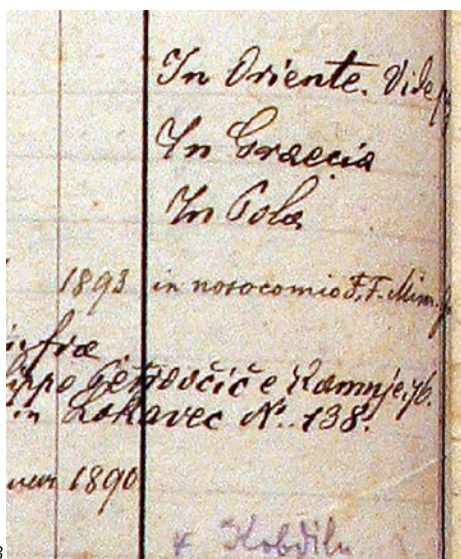 In Oriente. Vide
In Graecia
In Pola
1893 in nosocomio F.F. Mise
Petrovčič e Kamnje, 76.
in Lokavec №. 138.
1890
v Kobdilu